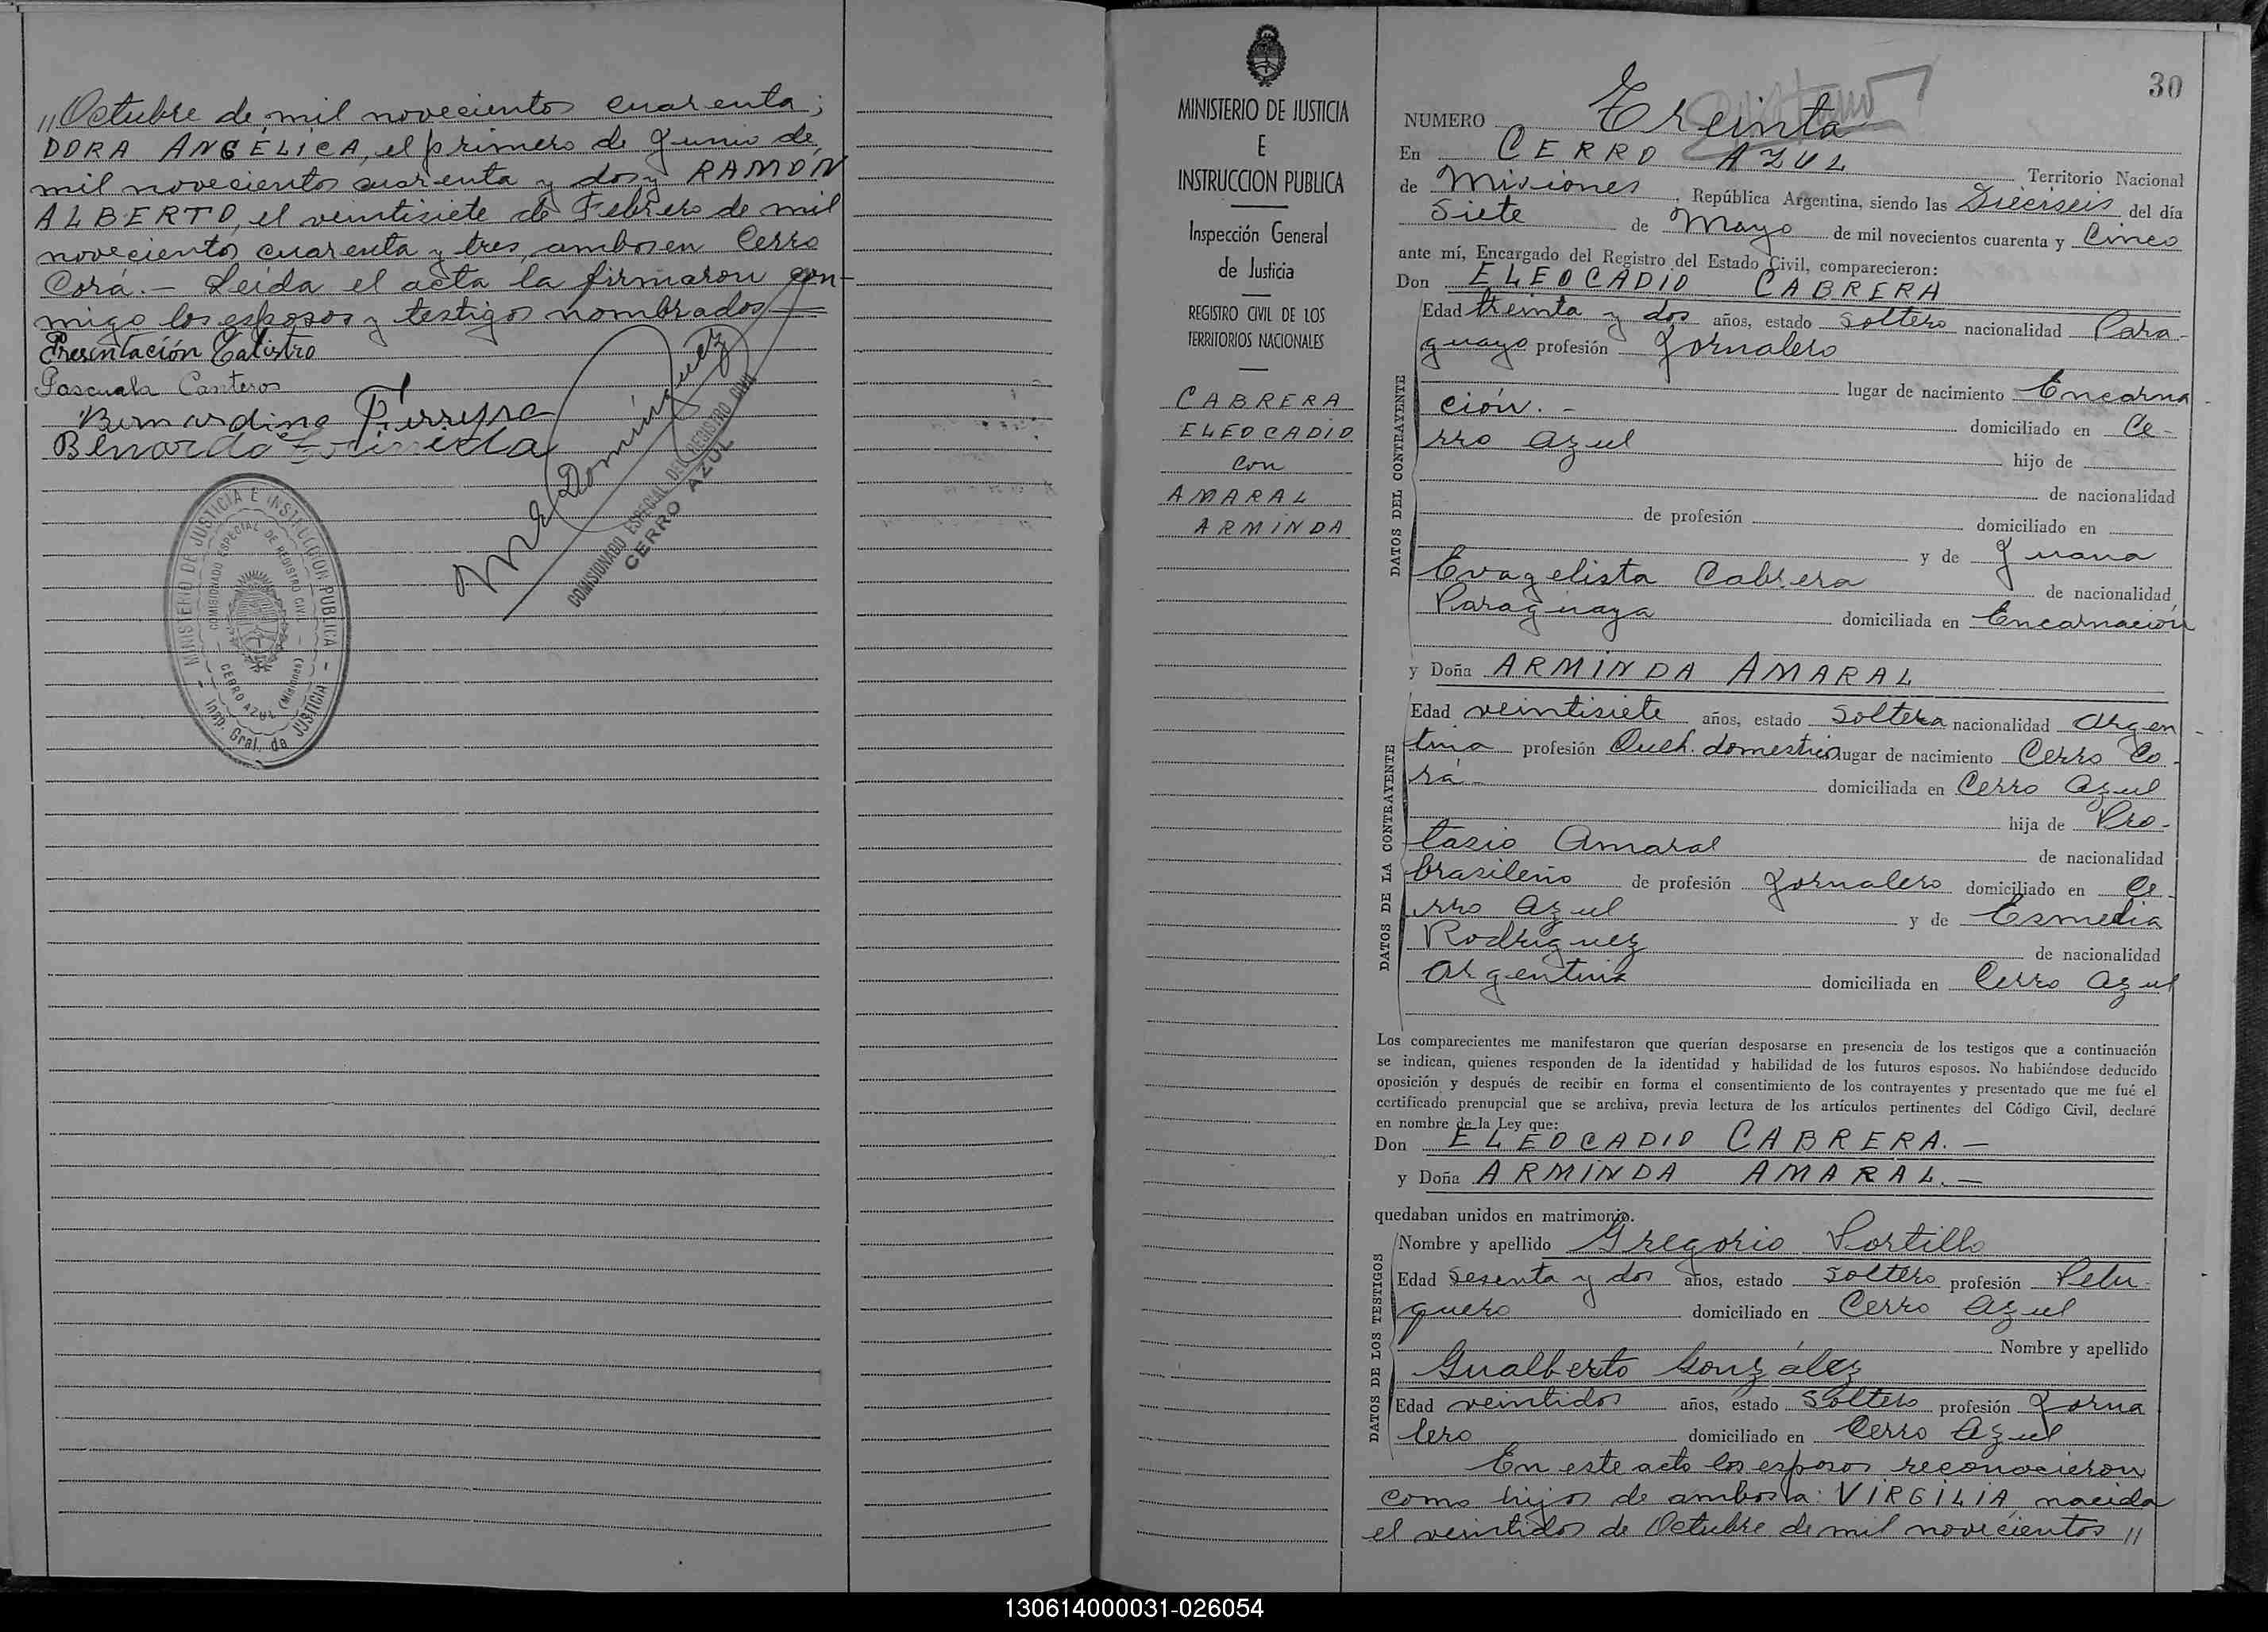 "Octubre de mil novecientos cuarenta;
DORA ANGÉLICA, el primero de Junio de,
mil novecientos cuarenta y dos y RAMON
ALBERTO, el veintisiete de Febrero de mil
novecientos cuarenta y tres, ambos en Cerro
Corá.- Leída el acta la firmaron con-
migo los esposos y testigos nombrados
Presentación
Pascuala Canteros
Bernardino Ferreyra
M E Dominguez
COMISIONADO ESPECIAL DEL REGISTRO CIVIL
CERRO AZUL
MINISTERIO DE JUSTICIA E INSTRUCCION PUBLICA
COMISIONADO ESPECIAL DE REGISTRO CIVIL
CERRO AZUL (Misiones)
Insp. Gral. de JUSTICIA
MINISTERIO DE JUSTICIA
E
INSTRUCCION PUBLICA
Inspección General
de Justicia
REGISTRO CIVIL DE LOS
TERRITORIOS NACIONALES
CABRERA
ELEOCADIO
con
AMARAL
ARMINDA
30
NUMERO Treinta
En CERRO AZUL Territorio Nacional
de Misiones, República Argentina, siendo las Dieciseis del día
Siete de Mayo de mil novecientos cuarenta y Cinco
ante mí, Encargado del Registro del Estado Civil, comparecieron:
Don ELEOCADIO CABRERA
DATOS DEL CONTRAYENTE
Edad treinta y dos años, estado soltero nacionalidad Para-
guayo profesión Jornalero
lugar de nacimiento Encarna-
ción.- domiciliado en Ce-
rro Azul hijo de
de nacionalidad
de profesión domiciliado en
y de Juana
Evagelista Cabrera de nacionalidad
Paraguaya domiciliada en Encarnación
y Doña ARMINDA AMARAL
DATOS DE LA CONTRAYENTE
Edad veintisiete años, estado soltera nacionalidad Argen-
tina profesión Queh. domestico lugar de nacimiento Cerro Co-
rá- domiciliada en Cerro Azul
hija de Pro-
tasio Amaral de nacionalidad
brasileño de profesión Jornalero domiciliado en Ce-
rro Azul y de Esmedia
Rodriguez de nacionalidad
Argentina domiciliada en Cerro Azul
Los comparecientes me manifestaron que querían desposarse en presencia de los testigos que a continuación
se indican, quienes responden de la identidad y habilidad de los futuros esposos. No habiéndose deducido
oposición y después de recibir en forma el consentimiento de los contrayentes y presentado que me fué el
certificado prenupcial que se archiva, previa lectura de los artículos pertinentes del Código Civil, declaré
en nombre de la Ley que:
Don ELEOCADIO CABRERA.-
y Doña ARMINDA AMARAL.-
quedaban unidos en matrimonio.
DATOS DE LOS TESTIGOS
Nombre y apellido Gregorio Portillo
Edad sesenta y dos años, estado soltero profesión Pelu-
quero domiciliado en Cerro Azul
Nombre y apellido
Gualberto González
Edad veintidos años, estado soltero profesión Jorna
lero domiciliado en Cerro Azul
En este acto los esposos reconocieron
como hijos de ambos a: VIRGILIA nacida
el veintidos de Octubre de mil novecientos "
130614000031-026054